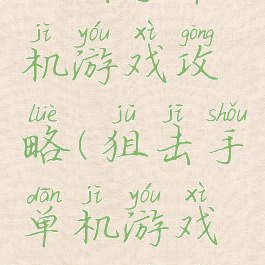 jī yóu xì gōng
机游戏攻
lüè jū jī shǒu
略(狙击手
dān jī yóu xì
单机游戏